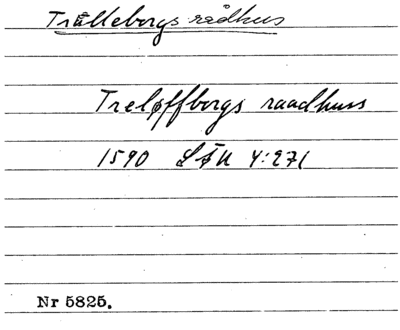 Trälleborgs rådhus
Treløffborgs raadhuss
1590 LÄU 4:271
Nr 5825.